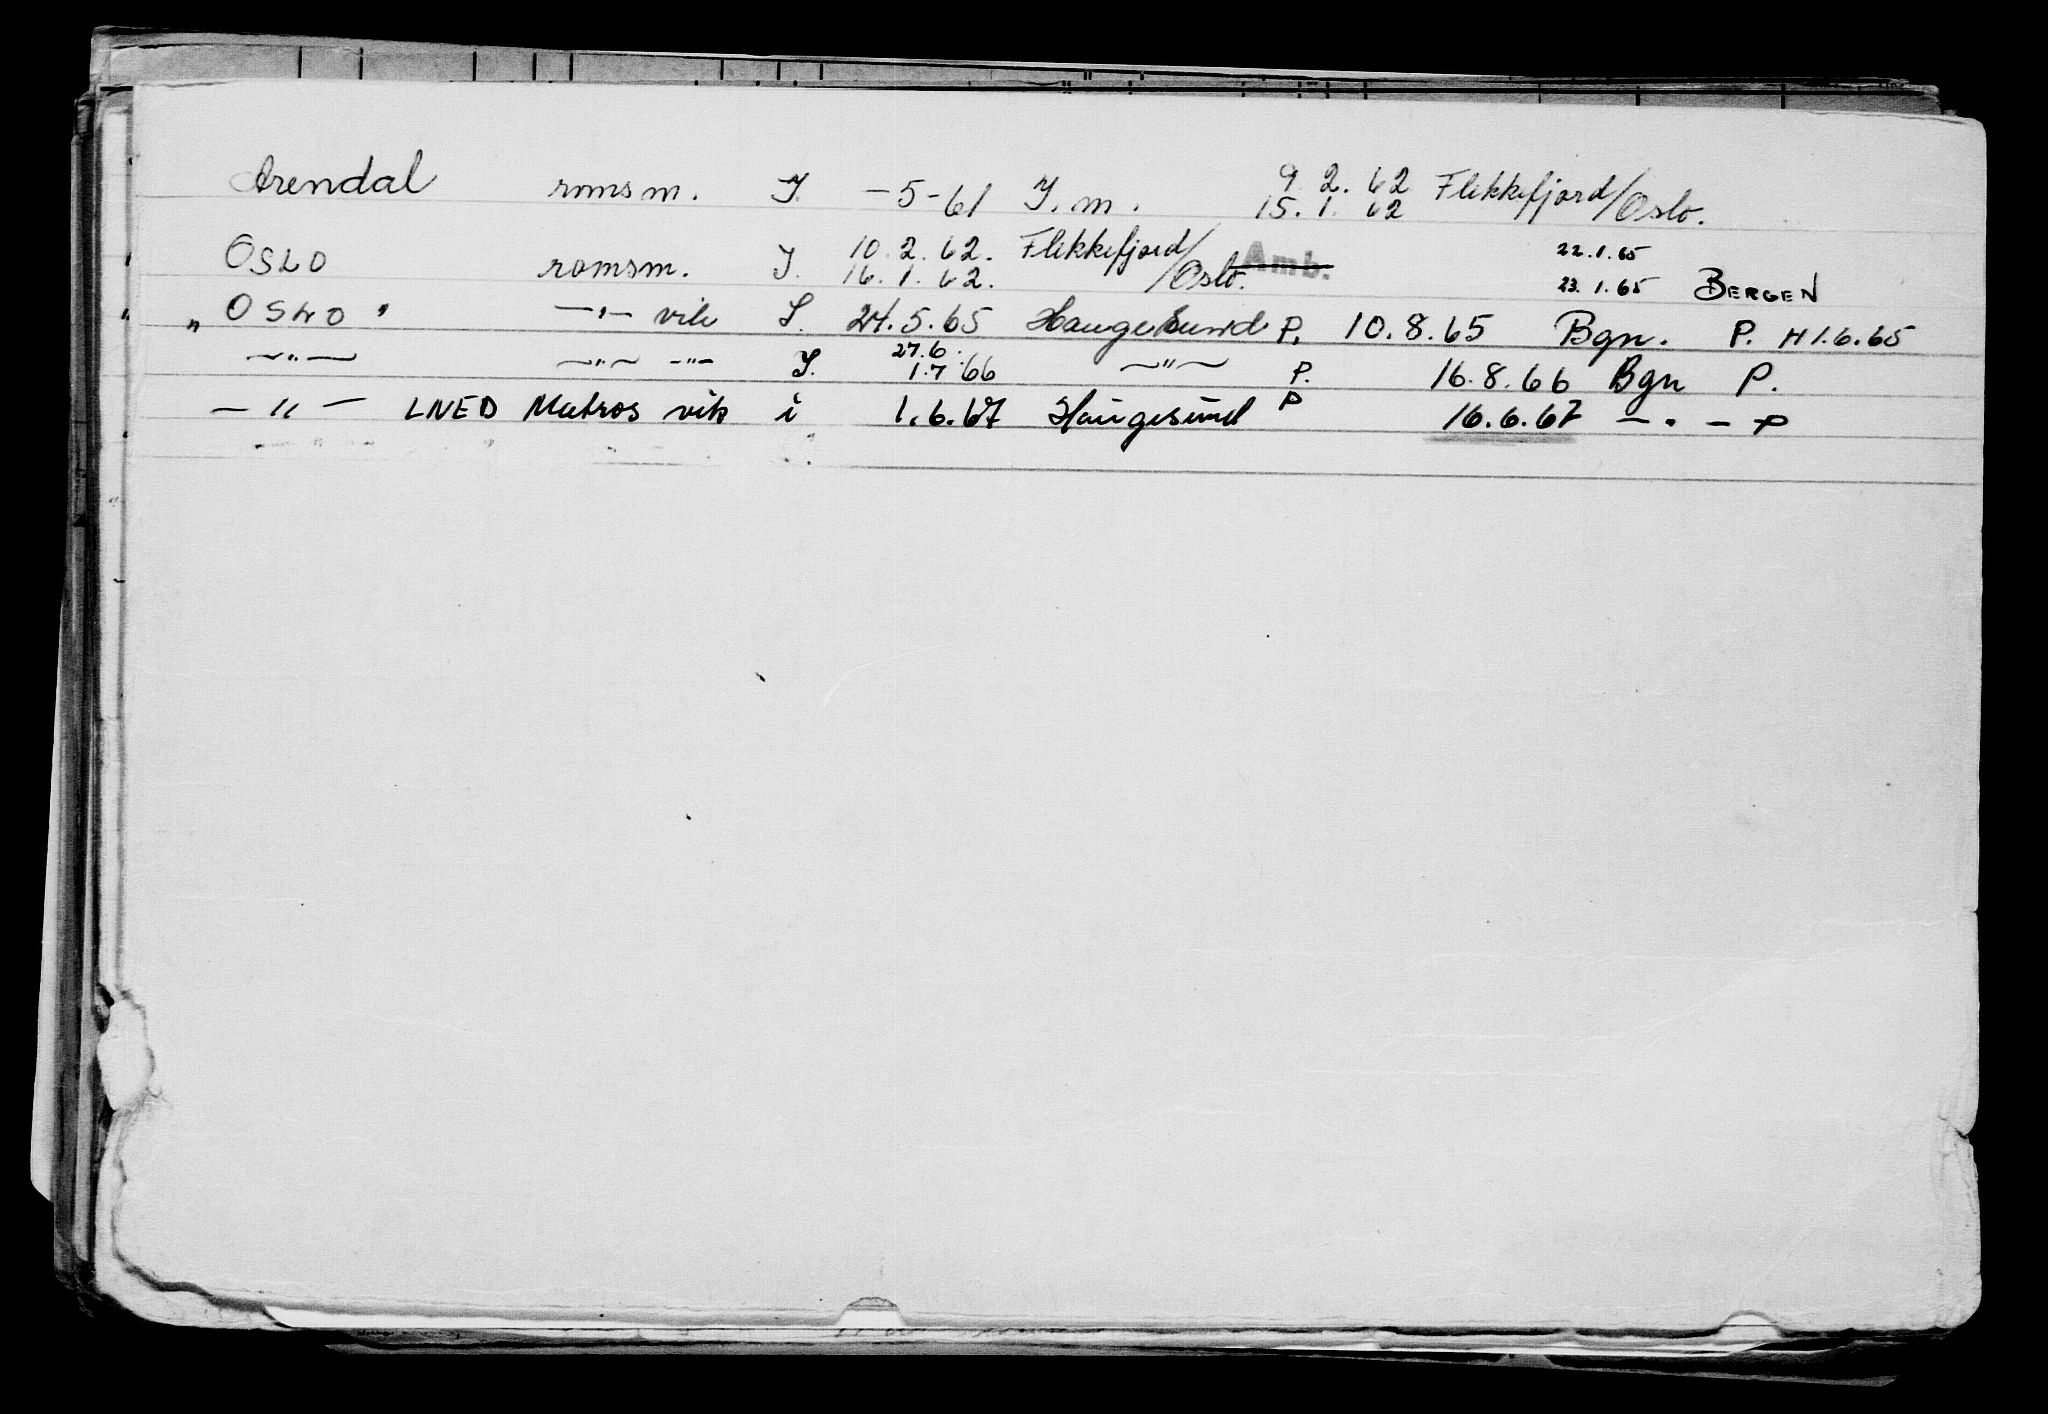 Arendal romsm. I. -5-61 I. m. 9. 2. 62 Flekkefjord/Oslo.
15. 1. 62
OSLO romsm. I. 10. 2. 62. Flekkefjord/Oslo. Amb. 22.1.65
16. 1. 62. 23.1.65 BERGEN
" OSLO " —"— vik I. 24.5.65 Haugesund P. 10.8.65 Bgn. P. H 1.6.65
—"— —"— —"— I. 27.6. 1.7.66 —"— P. 16.8.66 Bgn P.
—"— LNED Matros vik i 1.6.67 Haugesund P 16.6.67 — . — P